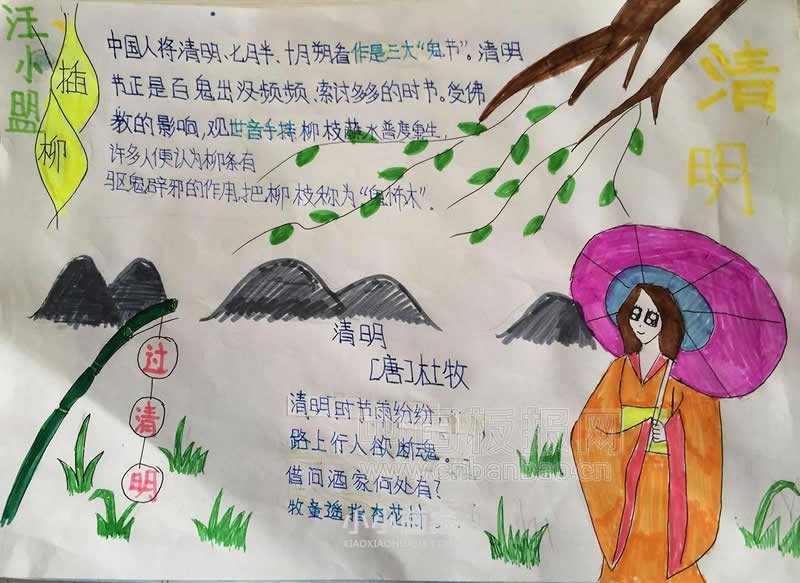 汪小盟
插柳
清明
中国人将清明、七月半、十月朔看作是三大“鬼节”。清明
节正是百鬼出没频频、索讨多多的时节。受佛
教的影响,观世音手持柳枝蘸水普度重生,
许多人便认为柳条有
驱鬼辟邪的作用,把柳枝称为“鬼怖木”.
过清明
清明
[唐]杜牧
清明时节雨纷纷
路上行人欲断魂。
借问酒家何处有?
牧童遥指杏花村
www.cnbanbao.cn
小小画家
XIAOXIAOHUAJIA.COM